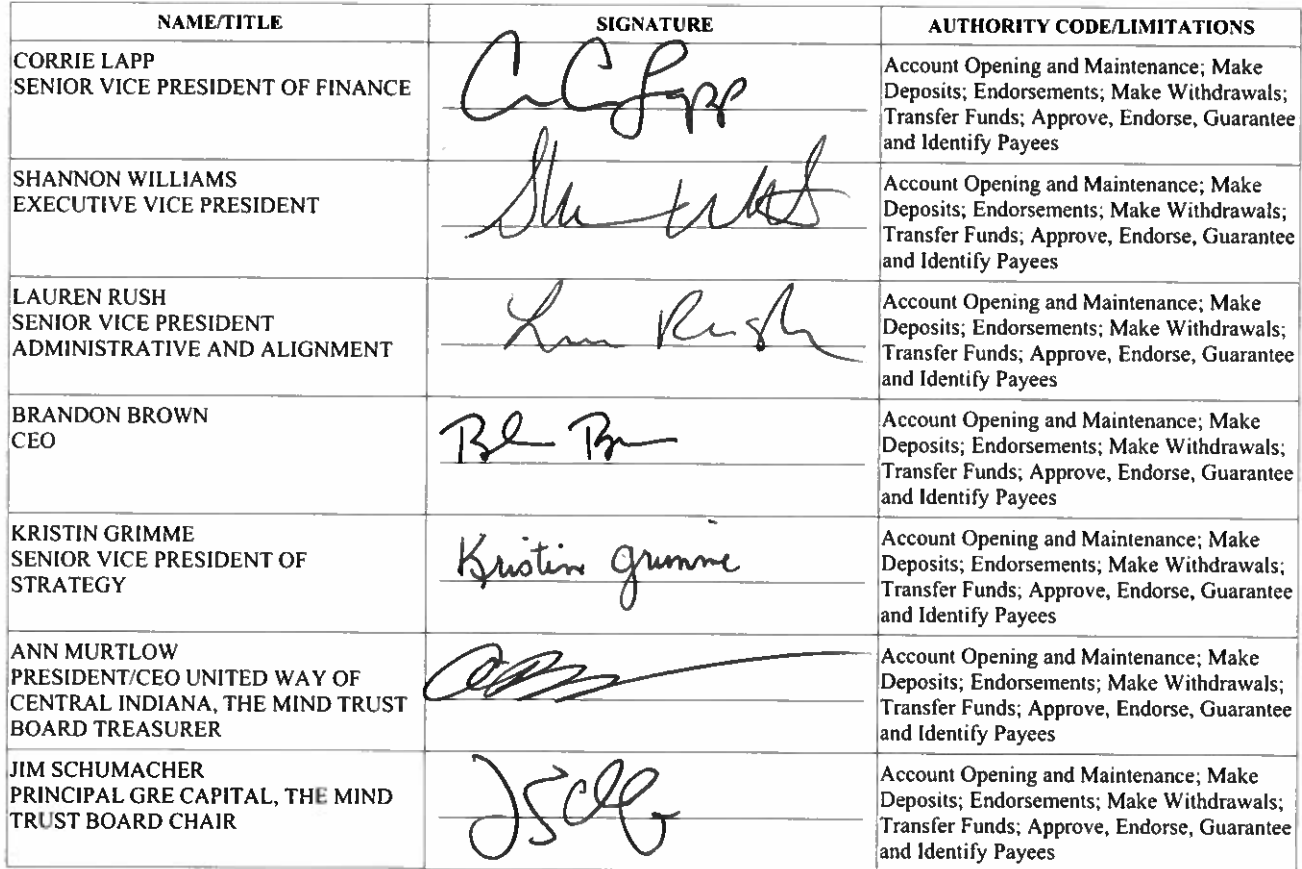 NAME/TITLE SIGNATURE AUTHORITY CODE/LIMITATIONS
CORRIE LAPP
SENIOR VICE PRESIDENT OF FINANCE
Account Opening and Maintenance; Make
Deposits; Endorsements; Make Withdrawals;
Transfer Funds; Approve, Endorse, Guarantee
and Identify Payees
SHANNON WILLIAMS
EXECUTIVE VICE PRESIDENT
Account Opening and Maintenance; Make
Deposits; Endorsements; Make Withdrawals;
Transfer Funds; Approve, Endorse, Guarantee
and Identify Payees
LAUREN RUSH
SENIOR VICE PRESIDENT
ADMINISTRATIVE AND ALIGNMENT
Account Opening and Maintenance; Make
Deposits; Endorsements; Make Withdrawals;
Transfer Funds; Approve, Endorse, Guarantee
and Identify Payees
BRANDON BROWN
CEO
Account Opening and Maintenance; Make
Deposits; Endorsements; Make Withdrawals;
Transfer Funds; Approve, Endorse, Guarantee
and Identify Payees
KRISTIN GRIMME
SENIOR VICE PRESIDENT OF
STRATEGY
Kristin Grimme
Account Opening and Maintenance; Make
Deposits; Endorsements; Make Withdrawals;
Transfer Funds; Approve, Endorse, Guarantee
and Identify Payees
ANN MURTLOW
PRESIDENT/CEO UNITED WAY OF
CENTRAL INDIANA, THE MIND TRUST
BOARD TREASURER
Account Opening and Maintenance; Make
Deposits; Endorsements; Make Withdrawals;
Transfer Funds; Approve, Endorse, Guarantee
and Identify Payees
JIM SCHUMACHER
PRINCIPAL GRE CAPITAL, THE MIND
TRUST BOARD CHAIR
Account Opening and Maintenance; Make
Deposits; Endorsements; Make Withdrawals;
Transfer Funds; Approve, Endorse, Guarantee
and Identify Payees